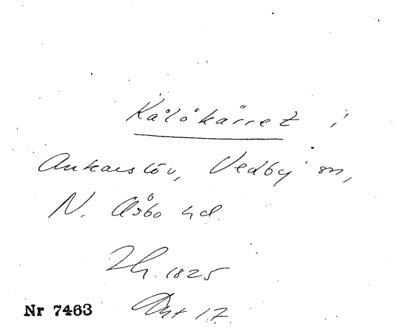 Kålökärret i
Ankarslöv, Vedby sn,
N. Åsbo hd.
Lh. 1825
Akt 17
Nr 7463